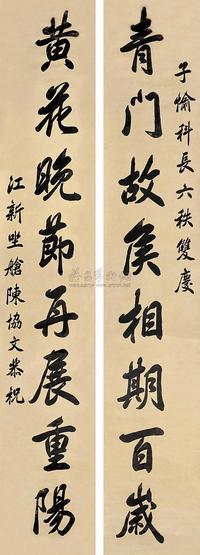 子愉科長六秩雙慶
青門故侯相期百歲
黃花晚節再展重陽
江新坐艙陳協文恭祝